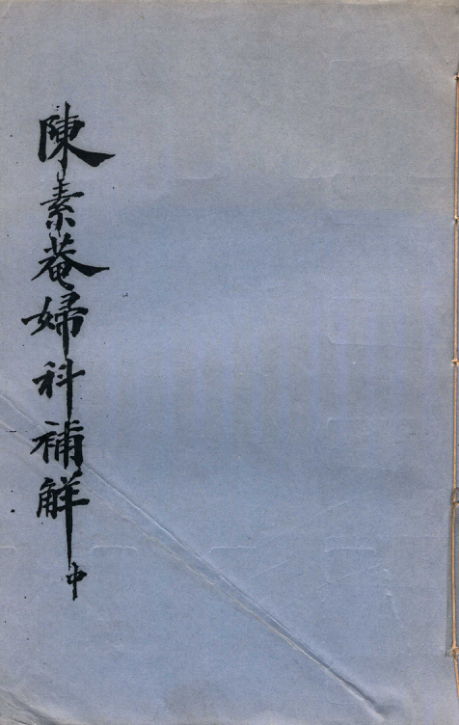 陳素菴婦科補解中